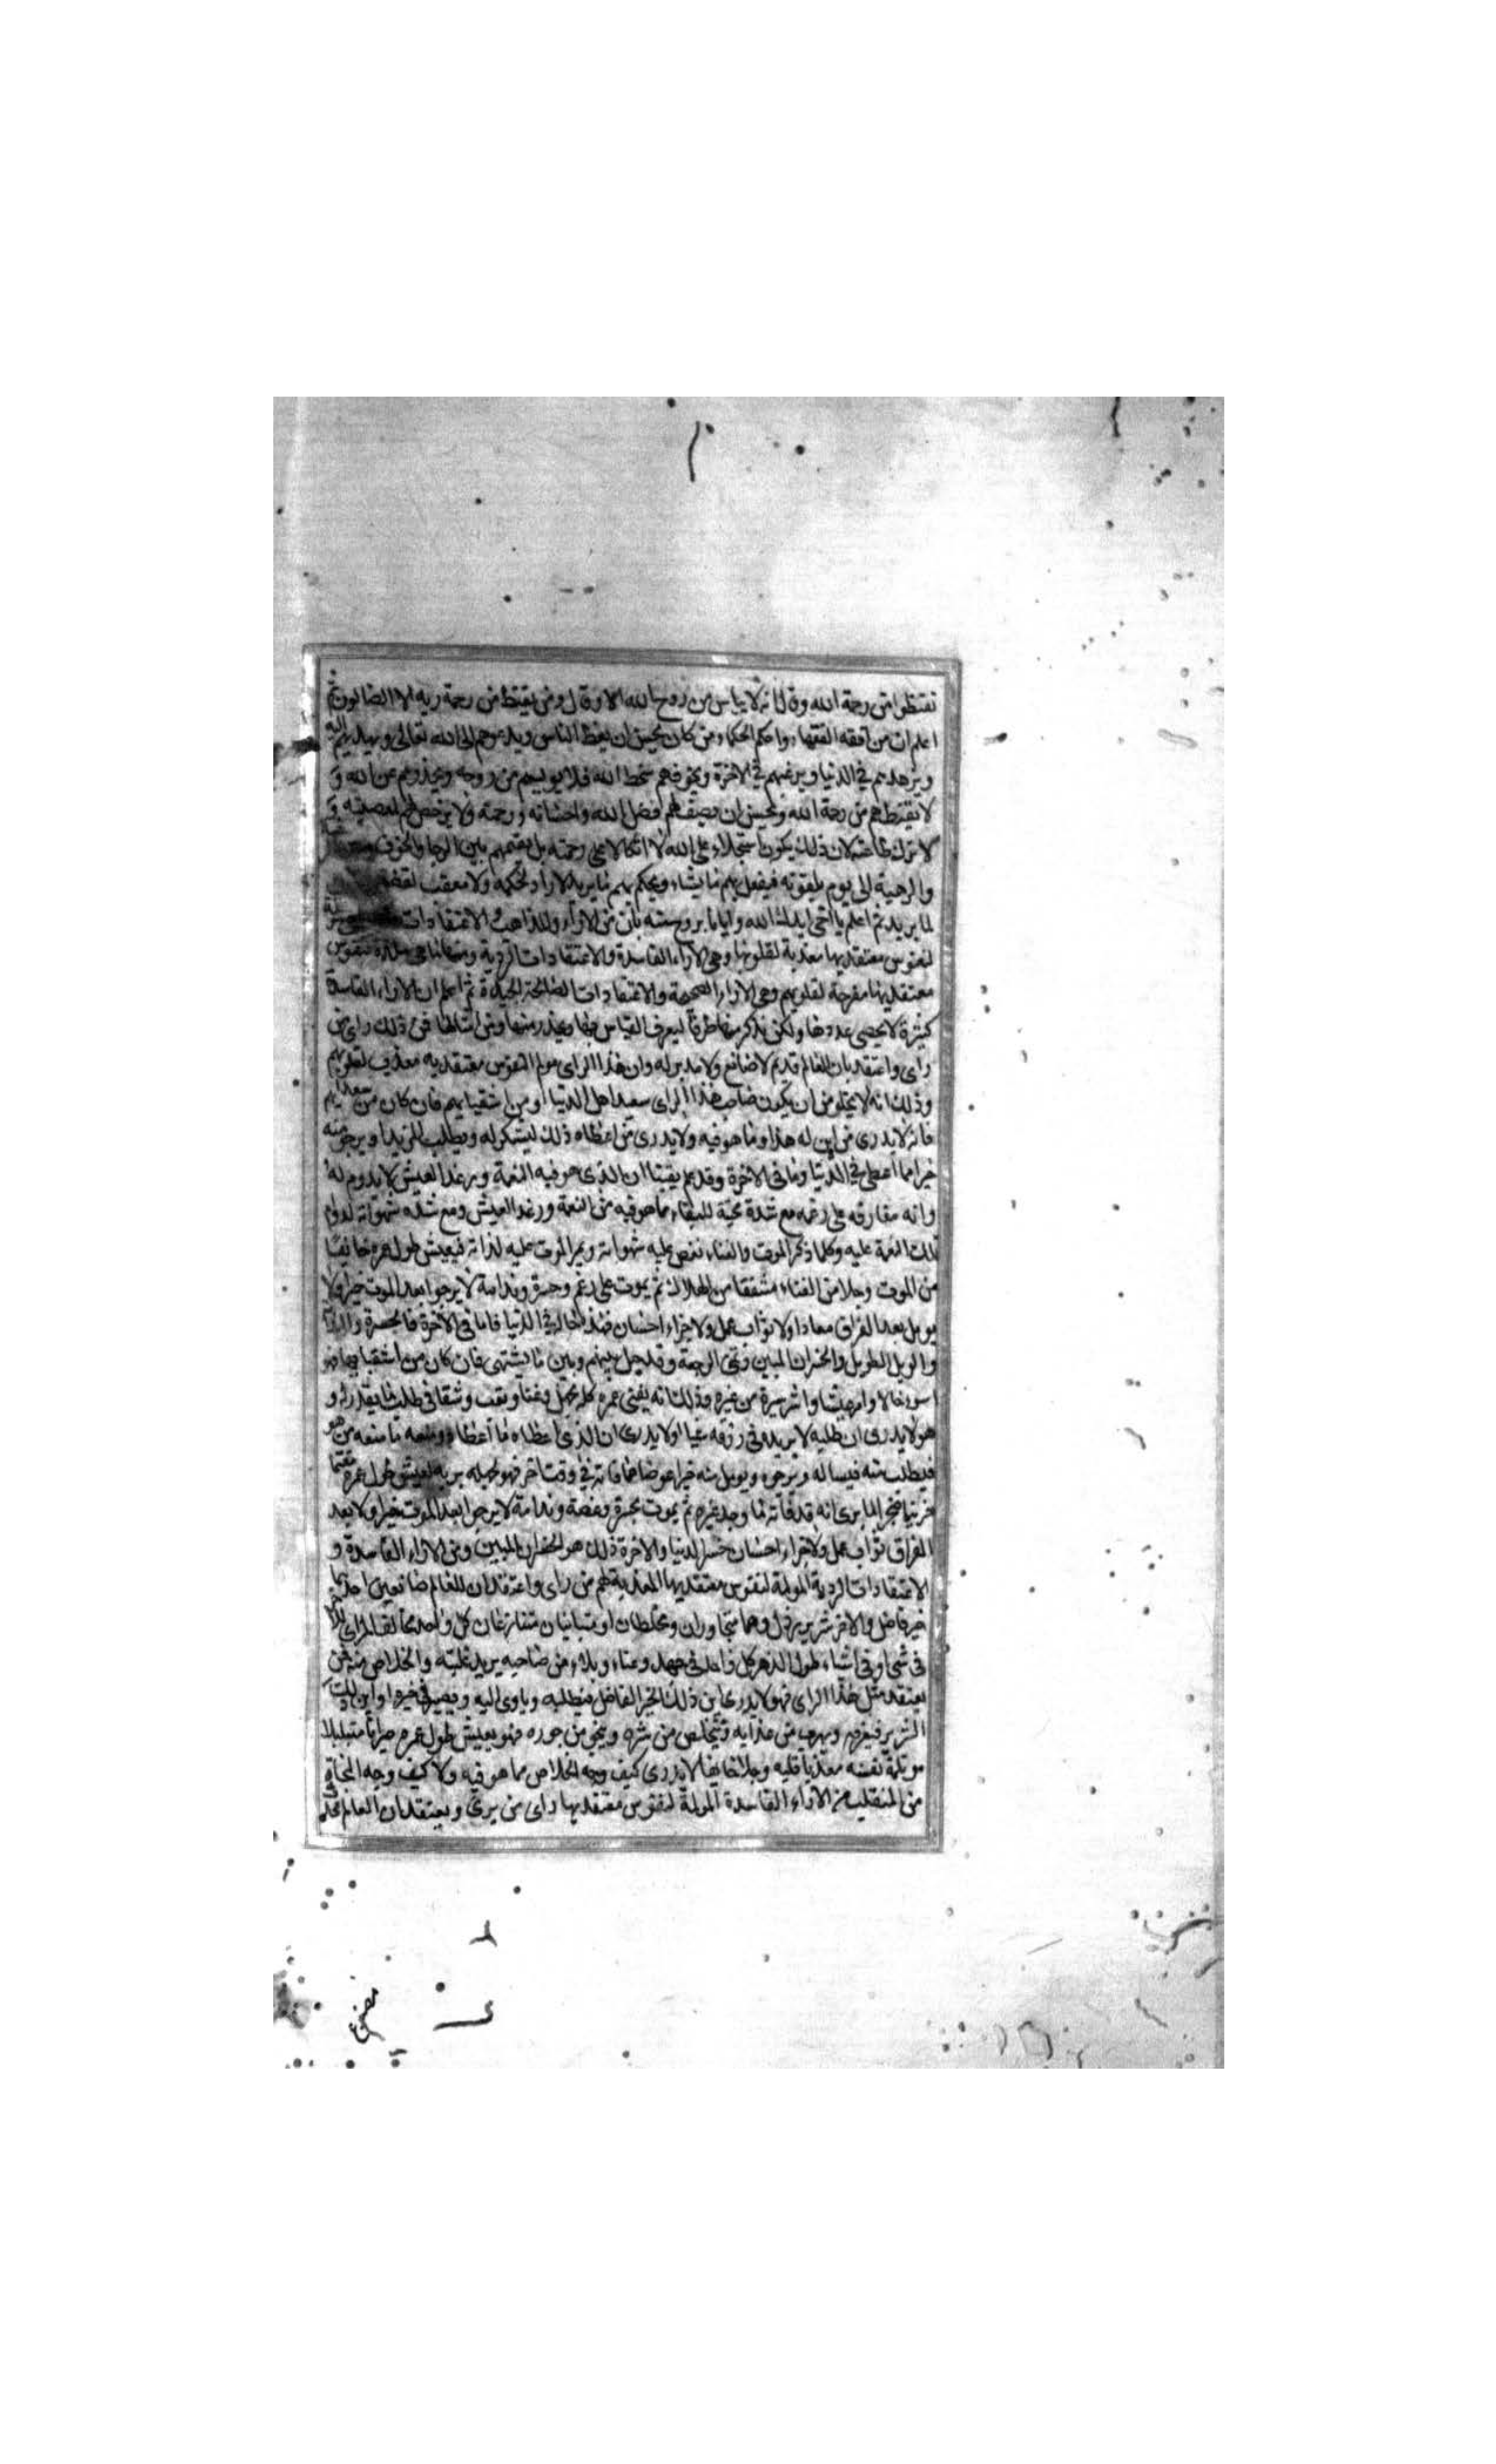 تقنطوا من رحمة الله وقال انه لا ييأس من روح الله الا وقال ومن يقنط من رحمة ربه الا الضالون ثم
اعلم ان من افقه الفقهاء واحكم الحكماء من كان يحسن ان يعظ الناس ويدعوهم الى الله تعالى ويهديهم اليه
ويزهدهم في الدنيا ويرغبهم في الاخرة ويخوفهم سخط الله فلا يوئيسهم من روحه ويحذرهم عن الله و
لا يقنطهم من رحمة الله ويحسن ان يصف لهم فضل الله واحسانه ورحمته ولا يرخص لهم لمعصيته و
لا ترك طاعته لان ذلك يكون استجلاء على الله لا اتكالا على رحمته بل يقيمهم بين الرجا والخوف
والرهبة الى يوم يلقونه فيفعل بهم ما يشاء ويحكم بهم ما يريد لا راد لحكمه ولا معقب لقضه
لما يريد ثم اعلم يا اخى ايدك الله وايانا بروح منه بان من الاراء والمذاهب والاعتقادات
لنفوس معتقديها معذبة لقلوبها وهى الاراء الفاسدة والاعتقادات الردية ومنها ما هى ملذة لنفوس
معتقديها مفرحة لقلوبهم وهى الاراء الصحيحة والاعتقادات الصالحة الجيدة ثم اعلم ان الاراء الفاسدة
كثيرة لا يحصى عددها ولكن نذكر منها طرفا ليعرف القياس فيها ويحذر منها ومن امثالها فمن ذلك راى من
راى واعتقد بان العالم قديم لا صانع ولا مدبر له وان هذا الراى مولم لنفوس معتقديه معذب لقلوبهم
وذلك انه لا يخلو من ان يكون صاحب هذا الراى سعيد اهل الدنيا او من اشقيايهم فان كان من سعدايهم
فانه لا يدرى من اين له هذا وما هو فيه ولا يدرى من اعطاه ذلك ليشكر له ويطلب المزيد او يرجو منه
خيرا مما اعطى في الدنيا وما فى الاخرة وقد علم يقينا ان الذى هو فيه النعمة ورغد العيش لا يدوم له
وانه مفارقه على رغمه مع شدة محبة للبقاء مما هو فيه من النعمة ورغد العيش ومع شدة شهواته لدوام
تلك النعمة عليه وكلما ذكر الموت والفناء نغص عليه شهواته ويمر الموت عليه لذاته فيعيش طول عمره خائفا
من الموت وجلا من الفناء مشفقا من الهلاك ثم يموت على رغم وحسرة وندامة لا يرجوا بعد الموت خيرا ولا
يومل بعد الفراق معادا ولا ثواب عمل ولا جزاء احسان فهذا حاله في الدنيا فاما في الاخرة فالحسرة والندامة
والويل الطويل والخسران المبين وتمنى الرجعة وقد حيل بينهم وبين ما يشتهى فان كان من اشقيايها فهو
اسود حالا وامر عيشا واشر سيرة من غيره وذلك انه يفنى عمره كله بجهل وعنا وتعب وشقا فى طلب ما يقدر له و
هو لا يدرى ان طلبه لا يزيد فى رزقه شيا او لا يدرى ان الذى اعطاه ما اعطاه ومنعه ما منعه من هو
فيطلب منه فيساله ويرجوه ويومل منه خيرا عوضا مما فاته في وقت اخر فهو لجهله بربه يعيش طول عمره مغتما
حزينا ضجرا لما يرى انه قد فاته ما وجد غيره ثم يموت بحسرة وغصة وندامة لا يرجوا بعد الموت خيرا ولا بعد
الفراق ثواب عمل ولا جزاء احسان خسر الدنيا والاخرة ذلك هو الخسران المبين ومن الاراء الفاسدة و
الاعتقادات الردية المولمة لنفوس معتقديها المعذبة لهم من راى واعتقد ان للعالم صانعين احدهما
خير فاضل والاخر شرير رذل وهما متجاوران ومختلطان او متباينان متنازعان كل واحد مخالف للراى الاخر
فى شى او فى اشياء طول الدهر كل واحد فى جهد وعناء وبلاء من صاحبه يريد غلبته والخلاص منه فمن
يعتقد مثل هذا الراى فهو لا يدرى اين ذلك الخير الفاضل فيطلبه وياوى اليه ويصير في حيره او اين ذلك
الشرير فيعرفه ويهرب من عذابه ويتخلص من شره وينجى من جوره فهو يعيش طول عمره حيرانا متبلبلا
مولمة نفسه معذبا قلبه وجلا خايفا لا يدرى كيف وجه الخلاص مما هو فيه ولا كيف وجه النجاة
من المنقلب من الاراء الفاسدة المولمة لنفوس معتقديها راى من يرى ويعتقد ان العالم محدث